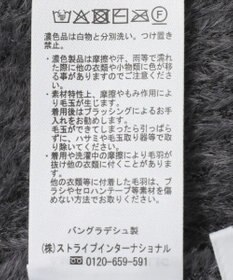 濃色品は白物と分別洗い。つけ置き
禁止。
・濃色製品は摩擦や汗、雨等で濡れ
た際に他の衣類や小物類に色が移
る事がありますのでご注意くださ
い。
・素材特性上、摩擦やもみ作用によ
り毛玉が生じます。
着用後はブラッシングによるお手
入れをお勧めします。
毛玉ができてしまったら引っぱら
ずに、ハサミや毛玉取り器等で取
り除いてください。
・着用や洗濯中の摩擦により毛羽が
抜けて他の衣類に付くことがあり
ます。
他の衣類等に付着した毛羽は、ブ
ラシやセロハンテープ等素材を傷
めない方法でお取りください。
バングラデシュ製
(株)ストライプインターナショナル
0120-659-591